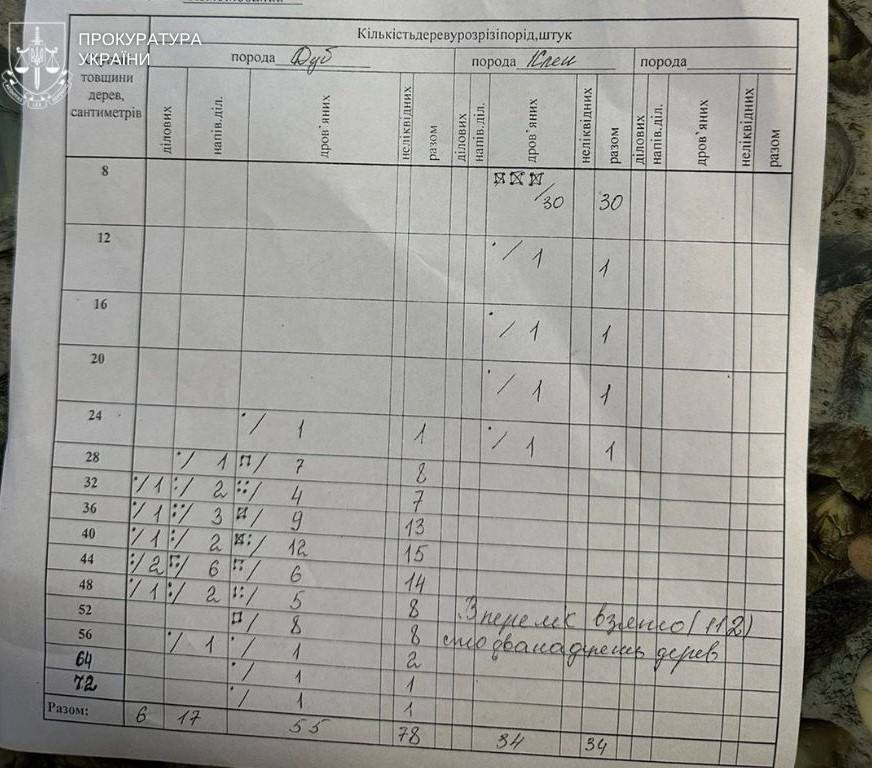 ПРОКУРАТУРА
УКРАЇНИ
Кількістьдеревурозрізіпорід,штук
порода Дуб порода Клен порода
товщини
дерев,
сантиметрів
ділових напів.діл. дров'яних неліквідних разом ділових напів.діл. дров'яних неліквідних разом ділових напів.діл. дров'яних неліквідних разом
8 /30 30
12 / 1 1
16 / 1 1
20 / 1 1
24 / 1 1 / 1 1
28 / 1 / 7 8
32 / 1 / 2 / 4 7
36 / 1 / 3 / 9 13
40 / 1 / 2 / 12 15
44 / 2 / 6 / 6 14
48 / 1 / 2 / 5 8
52 / 8 8
56 / 1 / 1 2
64 / 1 1
72 / 1 1
Разом: 6 17 55 78 34 34
З перелік взято (112)
сто дванадцять дерев